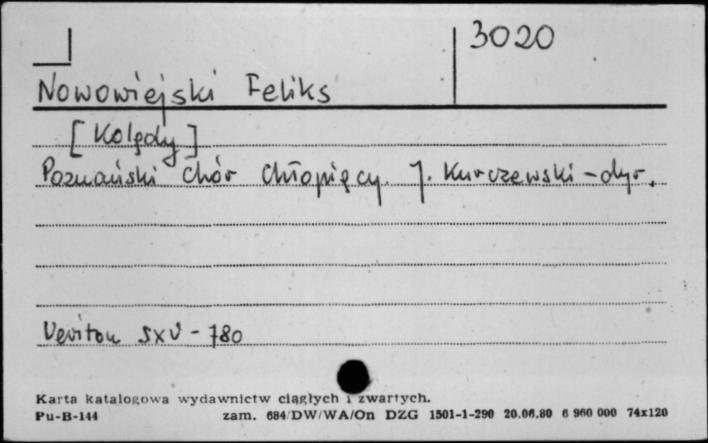 3020
Nowowiejski Feliks
[Kolędy]
Poznański Chór Chłopięcy. J. Kurczewski - dyr.
Veriton SXV - 780
Karta katalogowa wydawnictw ciągłych i zwartych.
Pu-B-144 zam. 684/DW/WA/On DZG 1501-1-290 20.06.80 6 960 000 74x120